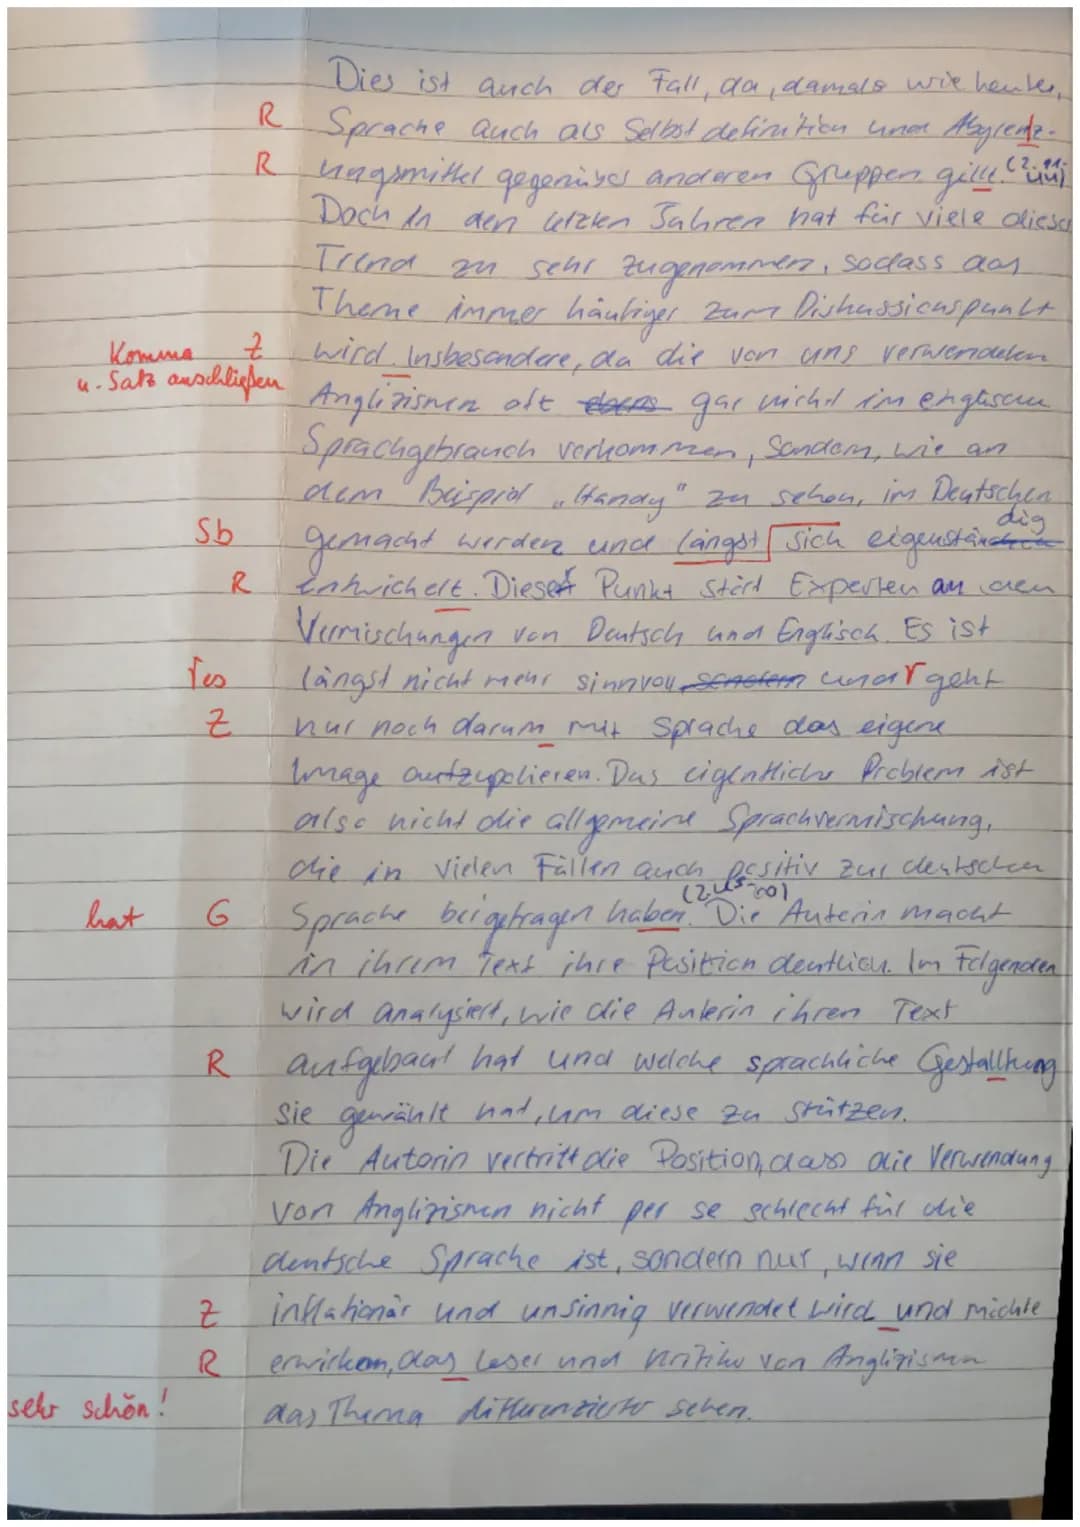 Dies ist auch der Fall, da, damals wie heute,
R Sprache auch als Selbstdefinition und Abgrenz-
R ungsmittel gegenüber anderen Gruppen gillt. (Z.
Doch in den letzten Jahren hat für viele dieser
Trend zu sehr zugenommen, sodass das
Theme immer häufiger zum Diskussionspunkt
Komma Z wird. Insbesondere, da die von uns verwendeten
u. Satz anschließen Anglizismen oft gar nicht im englischen
Sprachgebrauch vorkommen, sondern, wie an
dem Beispiel „Handy" zu sehen, im Deutschen
Sb gemacht werden und längst sich eigenständig
R entwickelt. Dieser Punkt stört Experten an den
Vermischungen von Deutsch und Englisch. Es ist
längst nicht mehr sinnvoll sondern und geht
Z nur noch darum mit Sprache das eigene
Image aufzupolieren. Das eigentliche Problem ist
also nicht die allgemeine Sprachvermischung,
die in vielen Fällen auch positiv zur deutschen
hat G Sprache beigetragen haben. Die Autorin macht
in ihrem Text ihre Position deutlich. Im Folgenden
wird analysiert, wie die Autorin ihren Text
R aufgebaut hat und welche sprachliche Gestalltung
sie gewählt hat, um diese zu stützen.
Die Autorin vertritt die Position, dass die Verwendung
von Anglizismen nicht per se schlecht für die
deutsche Sprache ist, sondern nur, wenn sie
Z inflationär und unsinnig verwendet wird und möchte
R erwirken, das Leser und Kritiker von Anglizismen
sehr schön! das Thema differenzierter sehen.